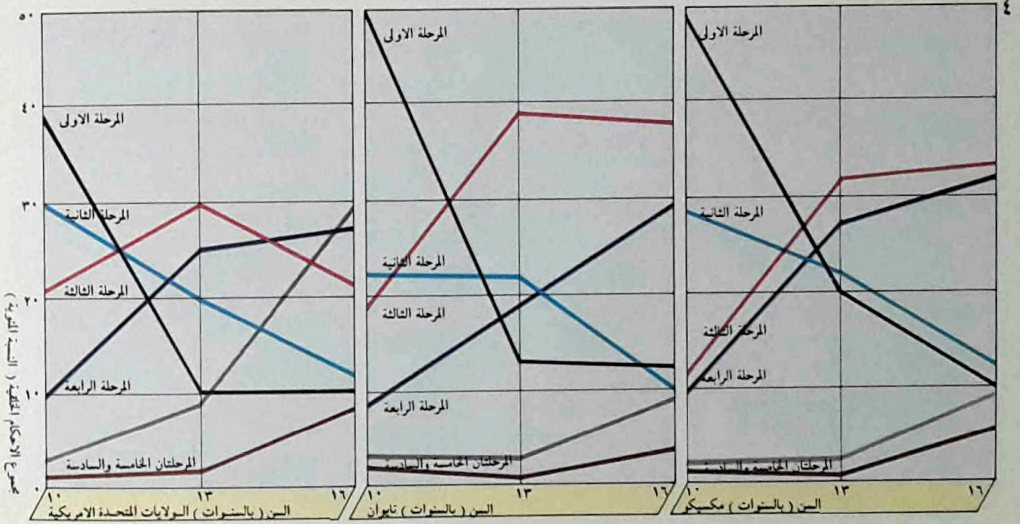 ٤
٥٠
٤٠
٣٠
٢٠
١٠
٠
مجموع الاحكام الخلقية ( النسبة المئوية )
المرحلة الاولى
المرحلة الثانية
المرحلة الثالثة
المرحلة الرابعة
المرحلتان الخامسة والسادسة
١٠ ١٣ ١٦
السن ( بالسنوات ) الولايات المتحدة الامريكية
المرحلة الاولى
المرحلة الثانية
المرحلة الثالثة
المرحلة الرابعة
المرحلتان الخامسة والسادسة
١٠ ١٣ ١٦
السن ( بالسنوات ) تايوان
المرحلة الاولى
المرحلة الثانية
المرحلة الثالثة
المرحلة الرابعة
المرحلتان الخامسة والسادسة
١٠ ١٣ ١٦
السن ( بالسنوات ) مكسيكو